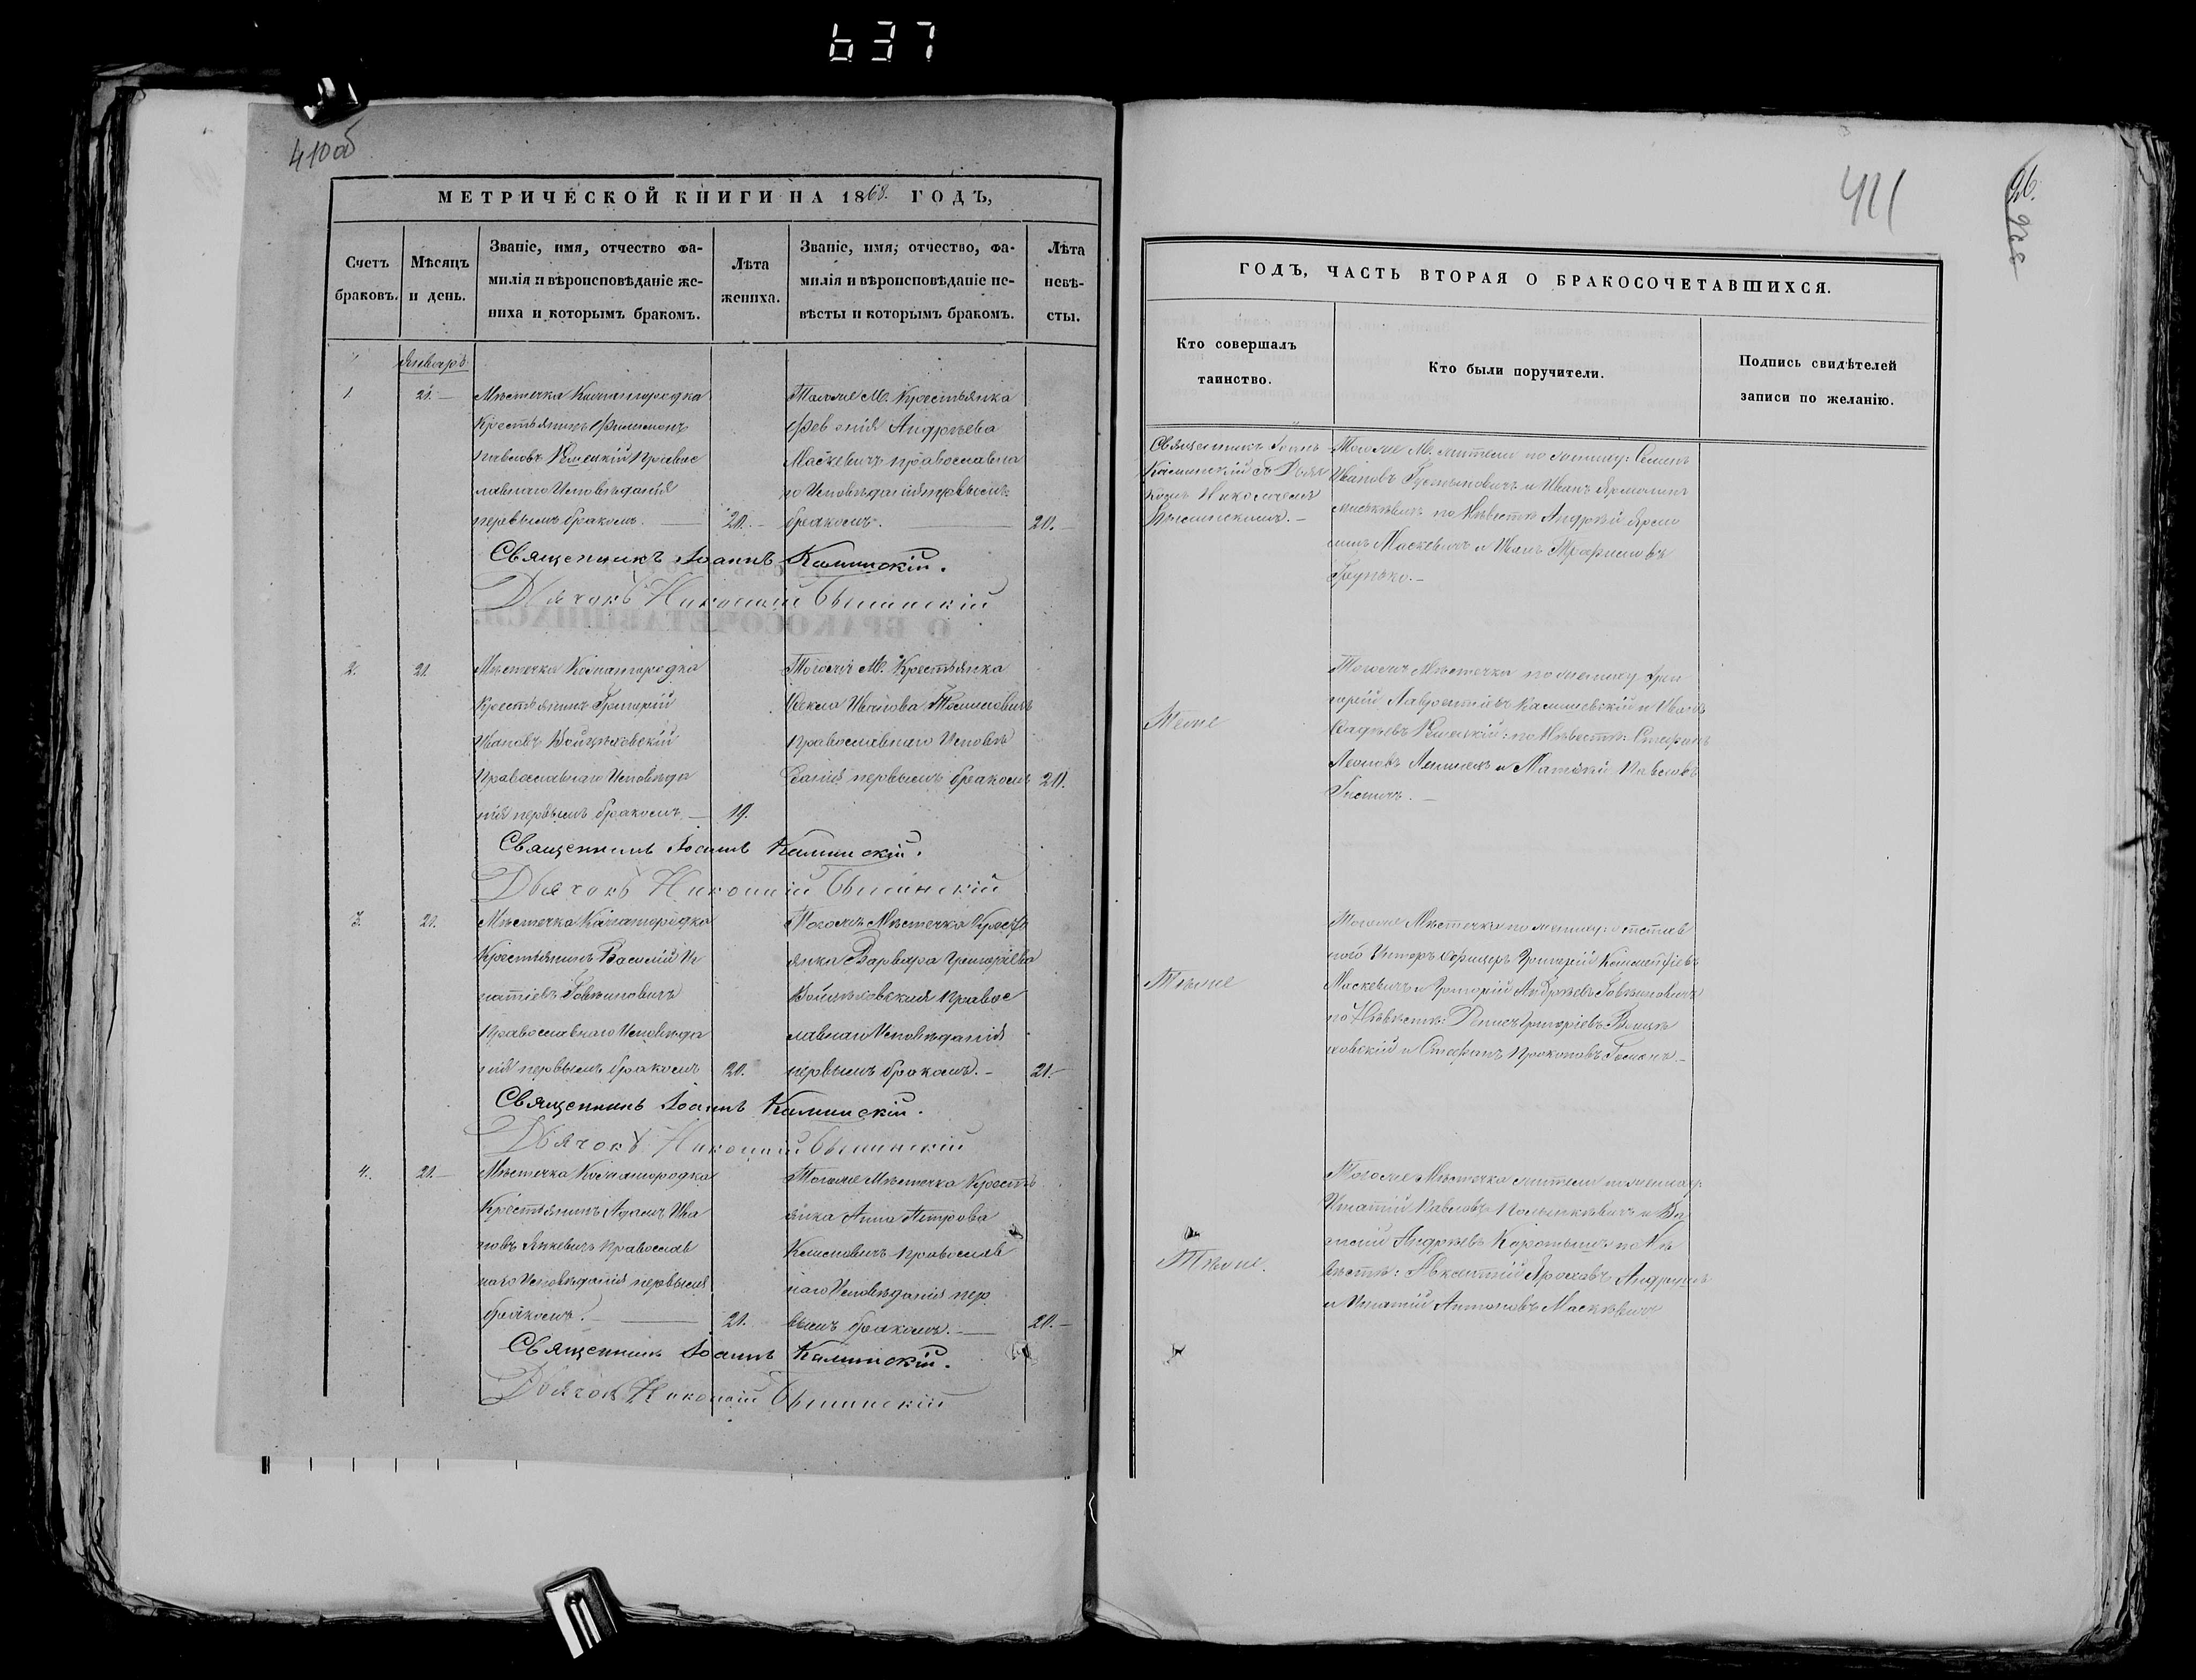 637
410об
МЕТРИЧЕСКОЙ КНИГИ НА 1868. ГОДЪ,
Счетъ браковъ.
Мѣсяцъ и день.
Званіе, имя, отчество фа-
милія и вѣроисповѣданіе же-
ниха и которымъ бракомъ.
Лѣта
жениха.
Званіе, имя, отчество, фа-
милія и вѣроисповѣданіе не-
вѣсты и которымъ бракомъ.
Лѣта
невѣ-
сты.
Январь
1. 21.
Мѣстечка Кожангородка
Крестьянинъ Филимонъ
Павловъ Православ
лавнаго Исповѣданія
первымъ бракомъ. 20.
Тогоже М. Крестьянка
Февронія Андреева
Маскевичъ православна
го Исповѣданія первымъ
бракомъ. 20.
Священникъ Іоаннъ Калинскій.
Дьячокъ Николай
2. 21.
Мѣстечка Кожангородка
Крестьянинъ Григорій
Ивановъ Войцѣховскій
Православнаго Исповѣда
нія первымъ бракомъ 19.
Тогожъ М. Крестьянка
Фекла Иванова
Православнаго Исповѣ
данія первымъ бракомъ 20.
Священникъ Іоаннъ Калинскій.
Дьячокъ Николай
3. 21.
Мѣстечка Кожангородка
Крестьянинъ Василій Иг
натіевъ Говѣиновичъ
Православнаго Исповѣда
нія первымъ бракомъ 20.
Тогожъ Мѣстечка Кресть
янка Варвара Григоріева
Войцѣховская Правос
лавнаго Исповѣданія
первымъ бракомъ. 21.
Священникъ Іоаннъ Калинскій.
Дьячокъ Николай
4. 21.
Мѣстечка Кожангородка
Крестьянинъ Адамъ Ива
новъ Янкевичъ Православ
наго Исповѣданія первымъ
бракомъ. 21.
Тогоже Мѣстечка Кресть
янка Анна Петрова
Климовичъ Православ
наго Исповѣданія пер
вымъ бракомъ. 20.
Священникъ Іоаннъ Калинскій.
Дьячокъ Николай
411
96.
ГОДЪ, ЧАСТЬ ВТОРАЯ О БРАКОСОЧЕТАВШИХСЯ.
Кто совершалъ
таинство.
Кто были поручители.
Подпись свидѣтелей
записи по желанію.
Священникъ Іоаннъ
Калинскій съ Дьяч
комъ Николаемъ
Тогоже М. жители по жениху: Семенъ
Ивановъ и Иванъ
по Невѣстѣ Андрей
Маскевичъ и Иванъ Трофимовъ
Тѣже
Тогожъ Мѣстечка по жениху Гри
горій Лаврентіевъ и Иванъ
по Невѣстѣ: Стефанъ
Леоновъ и Матѳѣй Павловъ
Тѣже
Тогоже Мѣстечка по жениху: отстав
ной Унтеръ Офицеръ Григорій
Маскевичъ и Григорій Андреевъ Говѣиновичъ
по Невѣстѣ: Денисъ Григоріевъ Войцѣ
ховскій и Стефанъ Прокоповъ
Тѣже.
Тогоже Мѣстечка жители по жениху:
Игнатій Павловъ и Ва
силій Андреевъ по Не
вѣстѣ: Авксентій
и Игнатій Антоновъ Маскевичъ